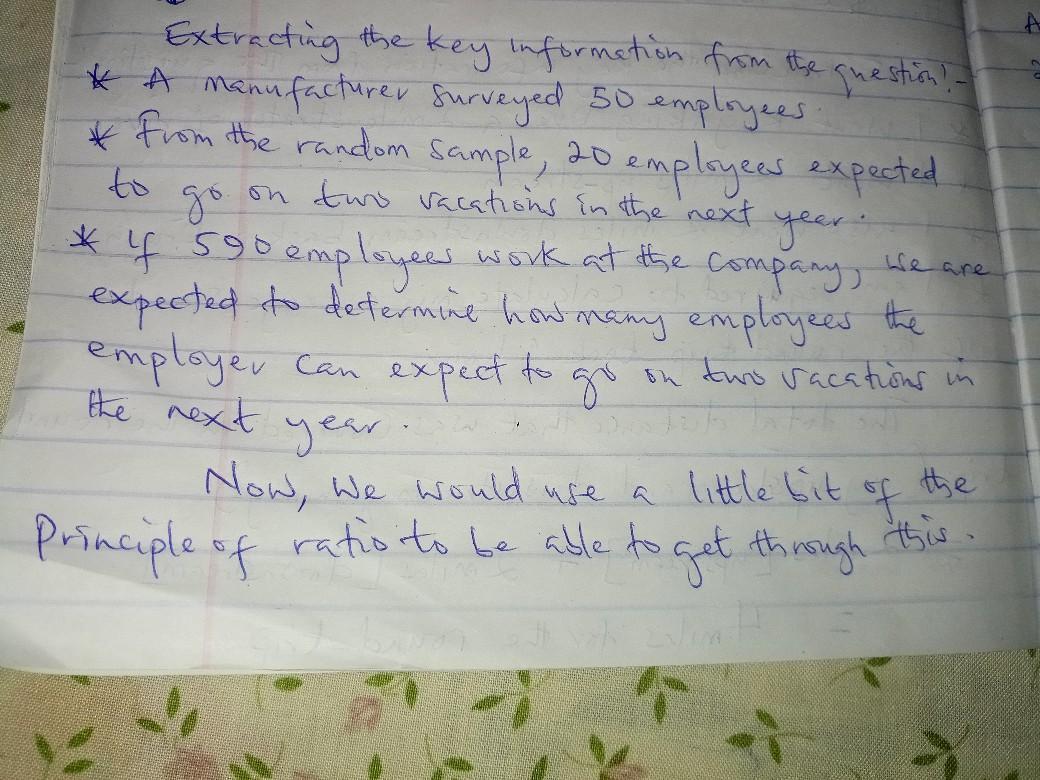 Extracting the key information from the question:-
* A manufacturer surveyed 50 employees.
* From the random sample, 20 employees expected
to go on two vacations in the next year.
* If 590 employees work at the company, we are
expected to determine how many employees the
employer can expect to go on two vacations in
the next year.
Now, we would use a little bit of the
Principle of ratio to be able to get through this.